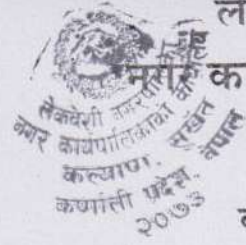 ल
नगर का
लेकवेशी नगरपालिका
नगर कार्यपालिकाको कार्यालय
कल्याण, सुर्खेत
कर्णाली प्रदेश, नेपाल
२०७३